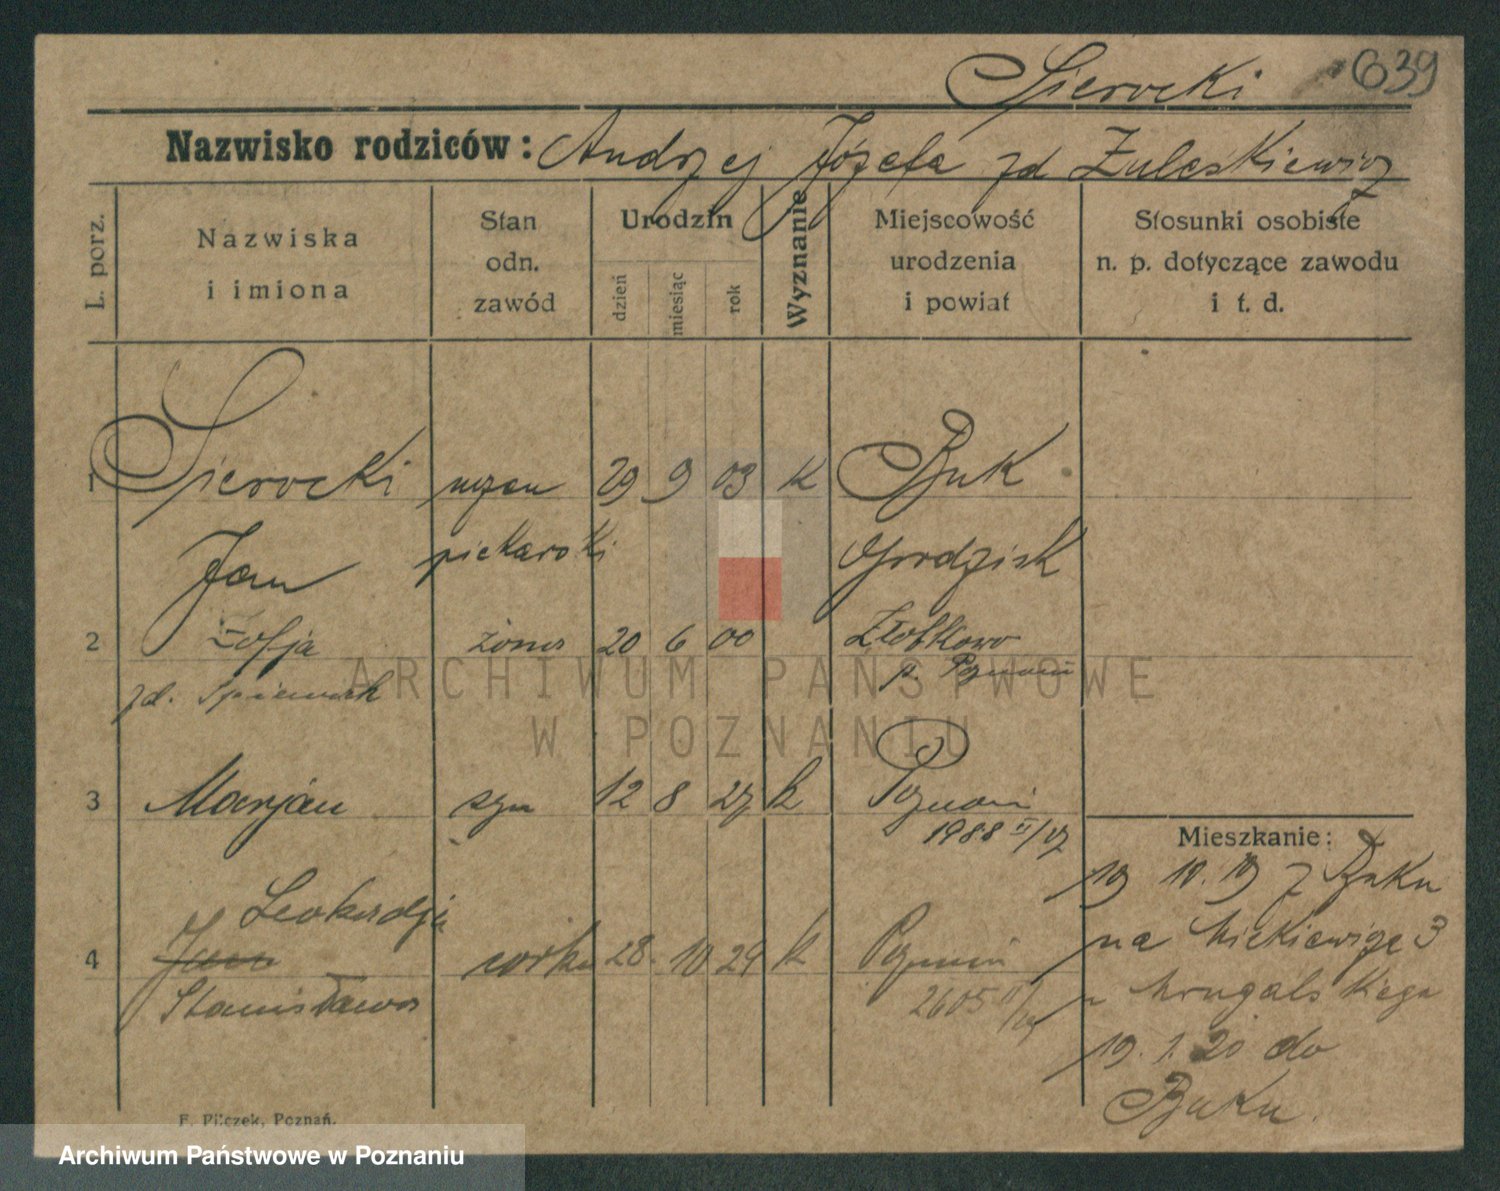 Sierocki 639
Nazwisko rodziców: Andrzej Józefa zd
L. porz.
Nazwiska
i imiona
Stan
odn.
zawód
Urodzin
dzień
miesiąc
rok
Wyznanie
Miejscowość
urodzenia
i powiat
Stosunki osobiste
n. p. dotyczące zawodu
i t. d.
1 Sierocki 29 9 03 k Buk
Jan piekarski Grodzisk
2 Zofja żona 20 6 00 Złotkowo
zd. Śpiewak p. Poznań
3 Marjan syn 12 8 27 k Poznań
1988 II/27
Mieszkanie:
19 10.19 z Buku
Leokadja
na Mickiewicza 3
4 Jan córka 28. 10 29 k Poznań
Stanisława 2605
u Mrugalskiego
19. 1. 20 do
Buku.
F. Pilczek, Poznań.
ARCHIWUM PAŃSTWOWE
W POZNANIU
Archiwum Państwowe w Poznaniu